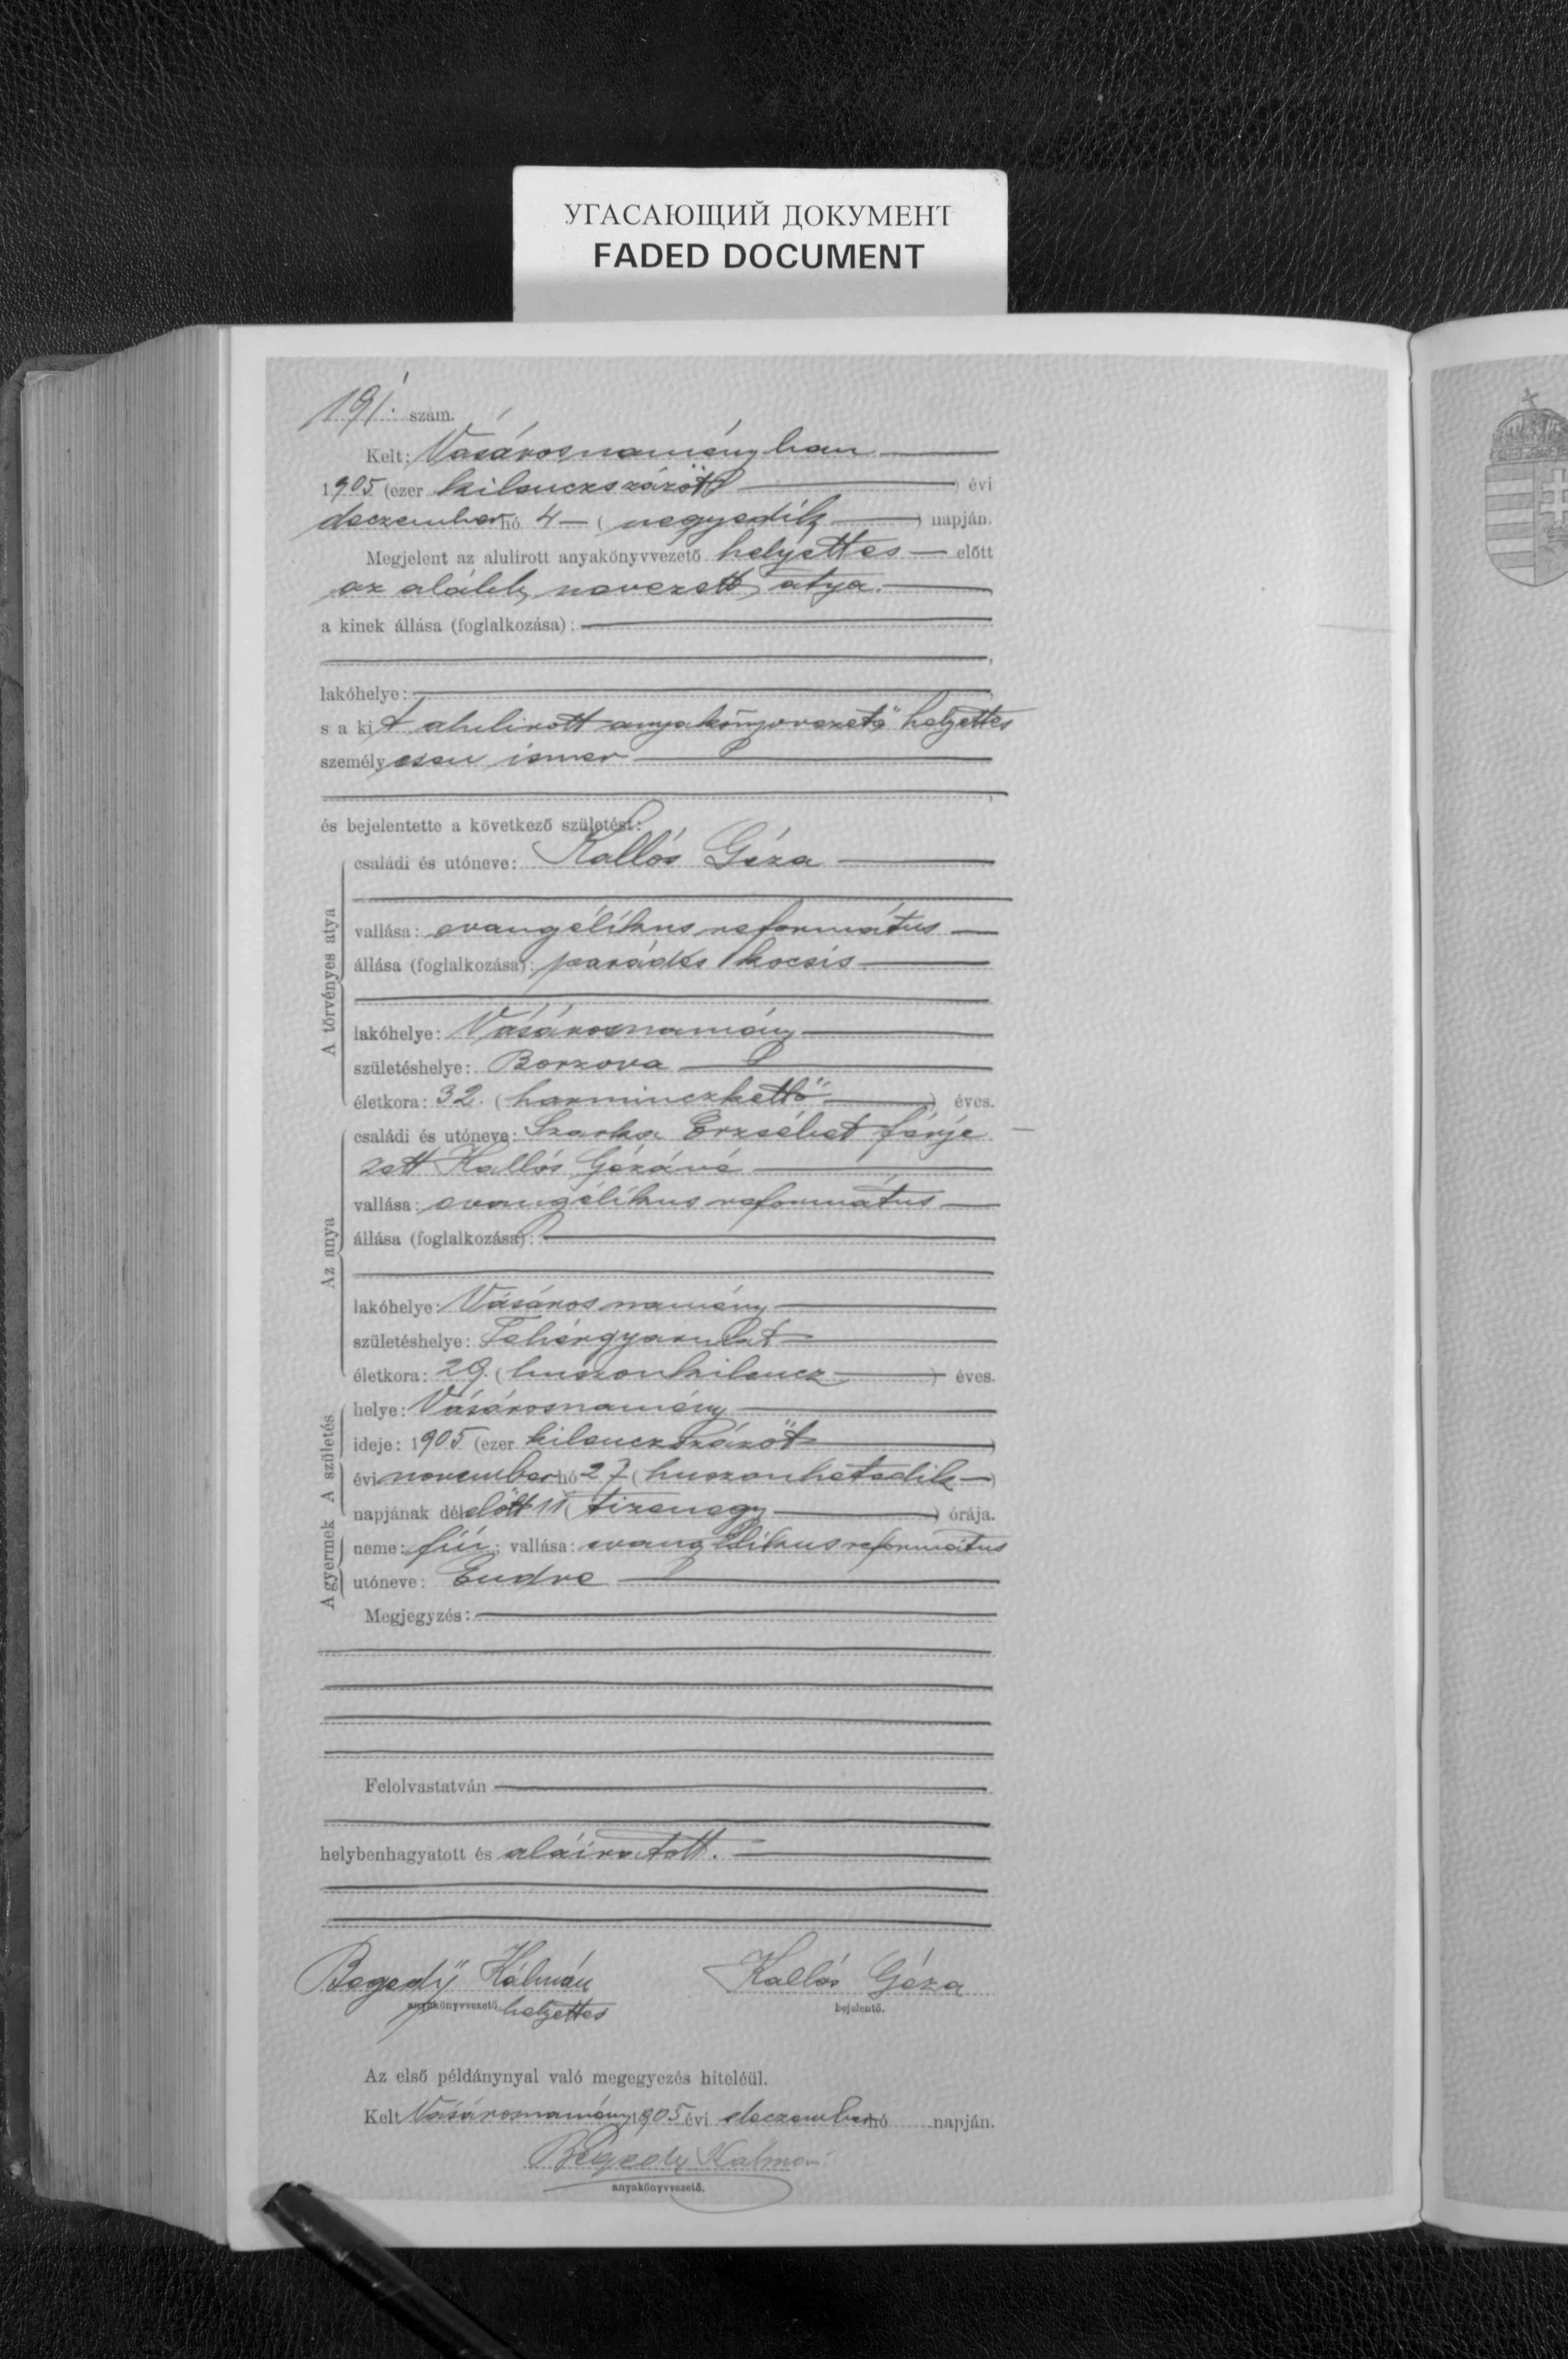 УГАСАЮЩИЙ ДОКУМЕНТ
FADED DOCUMENT
191. szám.
Kelt: Vásárosnaményban
1905 (ezer kilenczszázött) évi
deczember hó 4 (negyedik) napján.
Megjelent az alulirott anyakönyvvezető helyettes előtt
az alább nevezett atya.
a kinek állása (foglalkozása):
lakóhelye:
s a ki t alulirott anyakönyvvezető helyettes
személy esen ismer
és bejelentette a következő születést:
A törvényes atya
családi és utóneve: Kallós Géza
vallása: evangélikus református
állása (foglalkozása): parádés kocsis
lakóhelye: Vásárosnamény
születéshelye: Borzova
életkora: 32. (harminczkettő) éves.
Az anya
családi és utóneve: Szarka Erzsébet férje
zett Kallós Gézáné
vallása: evangélikus református
állása (foglalkozása):
lakóhelye: Vásárosnamény
születéshelye: Fehérgyarmat
életkora: 29. (huszonkilencz) éves.
A születés
helye: Vásárosnamény
ideje: 1905 (ezer kilenczszázöt)
évi november hó 27 (huszonhetedik)
napjának délelőtt 11 (tizenegy) órája.
A gyermek
neme: fiú; vallása: evangélikus református
utóneve: Endre
Megjegyzés:
Felolvastatván
helybenhagyatott és aláiratott.
Begedy Kálmán Kallós Géza
anyakönyvvezető helyettes bejelentő.
Az első példánynyal való megegyezés hiteléül.
Kelt Vásárosnamény 1905 évi deczember hó napján.
Begedy Kálmán
anyakönyvvezető.